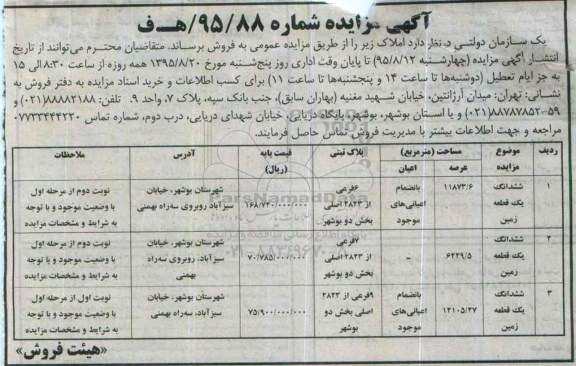 آگهی مزایده شماره ۹۵/۸۸/هـ‌ف
یک سازمان دولتی در نظر دارد املاک زیر را از طریق مزایده عمومی به فروش برساند. متقاضیان محترم می‌توانند از تاریخ
انتشار آگهی مزایده (چهارشنبه ۹۵/۸/۱۲) تا پایان وقت اداری روز پنج‌شنبه مورخ ۱۳۹۵/۸/۲۰ همه روزه از ساعت ۸:۳۰ الی ۱۵
به جز ایام تعطیل (دوشنبه‌ها تا ساعت ۱۴ و پنجشنبه‌ها تا ساعت ۱۱) برای کسب اطلاعات و خرید اسناد مزایده به دفتر فروش به
نشانی: تهران: میدان آرژانتین، خیابان شهید مغنیه (بهاران سابق)، جنب بانک سپه، پلاک ۷، واحد ۹. تلفن: ۸۸۸۸۲۱۸۸(۰۲۱) و
۵۹-۸۸۷۸۷۸۵۲(۰۲۱) و یا استان بوشهر، بوشهر، پایگاه دریایی، خیابان شهدای دریایی، درب دوم، شماره تماس ۰۷۷۳۳۴۴۴۲۳۰
مراجعه و جهت اطلاعات بیشتر با مدیریت فروش تماس حاصل فرمایند.
ردیف موضوع مزایده مساحت (مترمربع) عرصه اعیان پلاک ثبتی قیمت پایه (ریال) آدرس ملاحظات
۱ ششدانگ یک قطعه زمین ۱۱۸۷۳/۶ بانضمام اعیانی‌های موجود ۶فرعی از ۲۸۲۳ اصلی بخش دو بوشهر ۱۶۸/۷۴۰/۰۰۰/۰۰۰ شهرستان بوشهر، خیابان سبزآباد روبروی سه‌راه بهمنی نوبت دوم از مرحله اول با وضعیت موجود و با توجه به شرایط و مشخصات مزایده
۲ ششدانگ یک قطعه زمین ۶۲۲۹/۵ - ۷فرعی از ۲۸۲۳ اصلی بخش دو بوشهر ۷۰/۷۸۵/۰۰۰/۰۰۰ شهرستان بوشهر، خیابان سبزآباد، روبروی سه‌راه بهمنی نوبت دوم از مرحله اول با وضعیت موجود و با توجه به شرایط و مشخصات مزایده
۳ ششدانگ یک قطعه زمین ۱۲۱۰۵/۲۷ بانضمام اعیانی‌های موجود ۹فرعی از ۲۸۲۳ اصلی بخش دو بوشهر ۷۵/۹۰۰/۰۰۰/۰۰۰ شهرستان بوشهر، خیابان سبزآباد، سه‌راه بهمنی نوبت اول از مرحله اول با وضعیت موجود و با توجه به شرایط و مشخصات مزایده
«هیئت فروش»